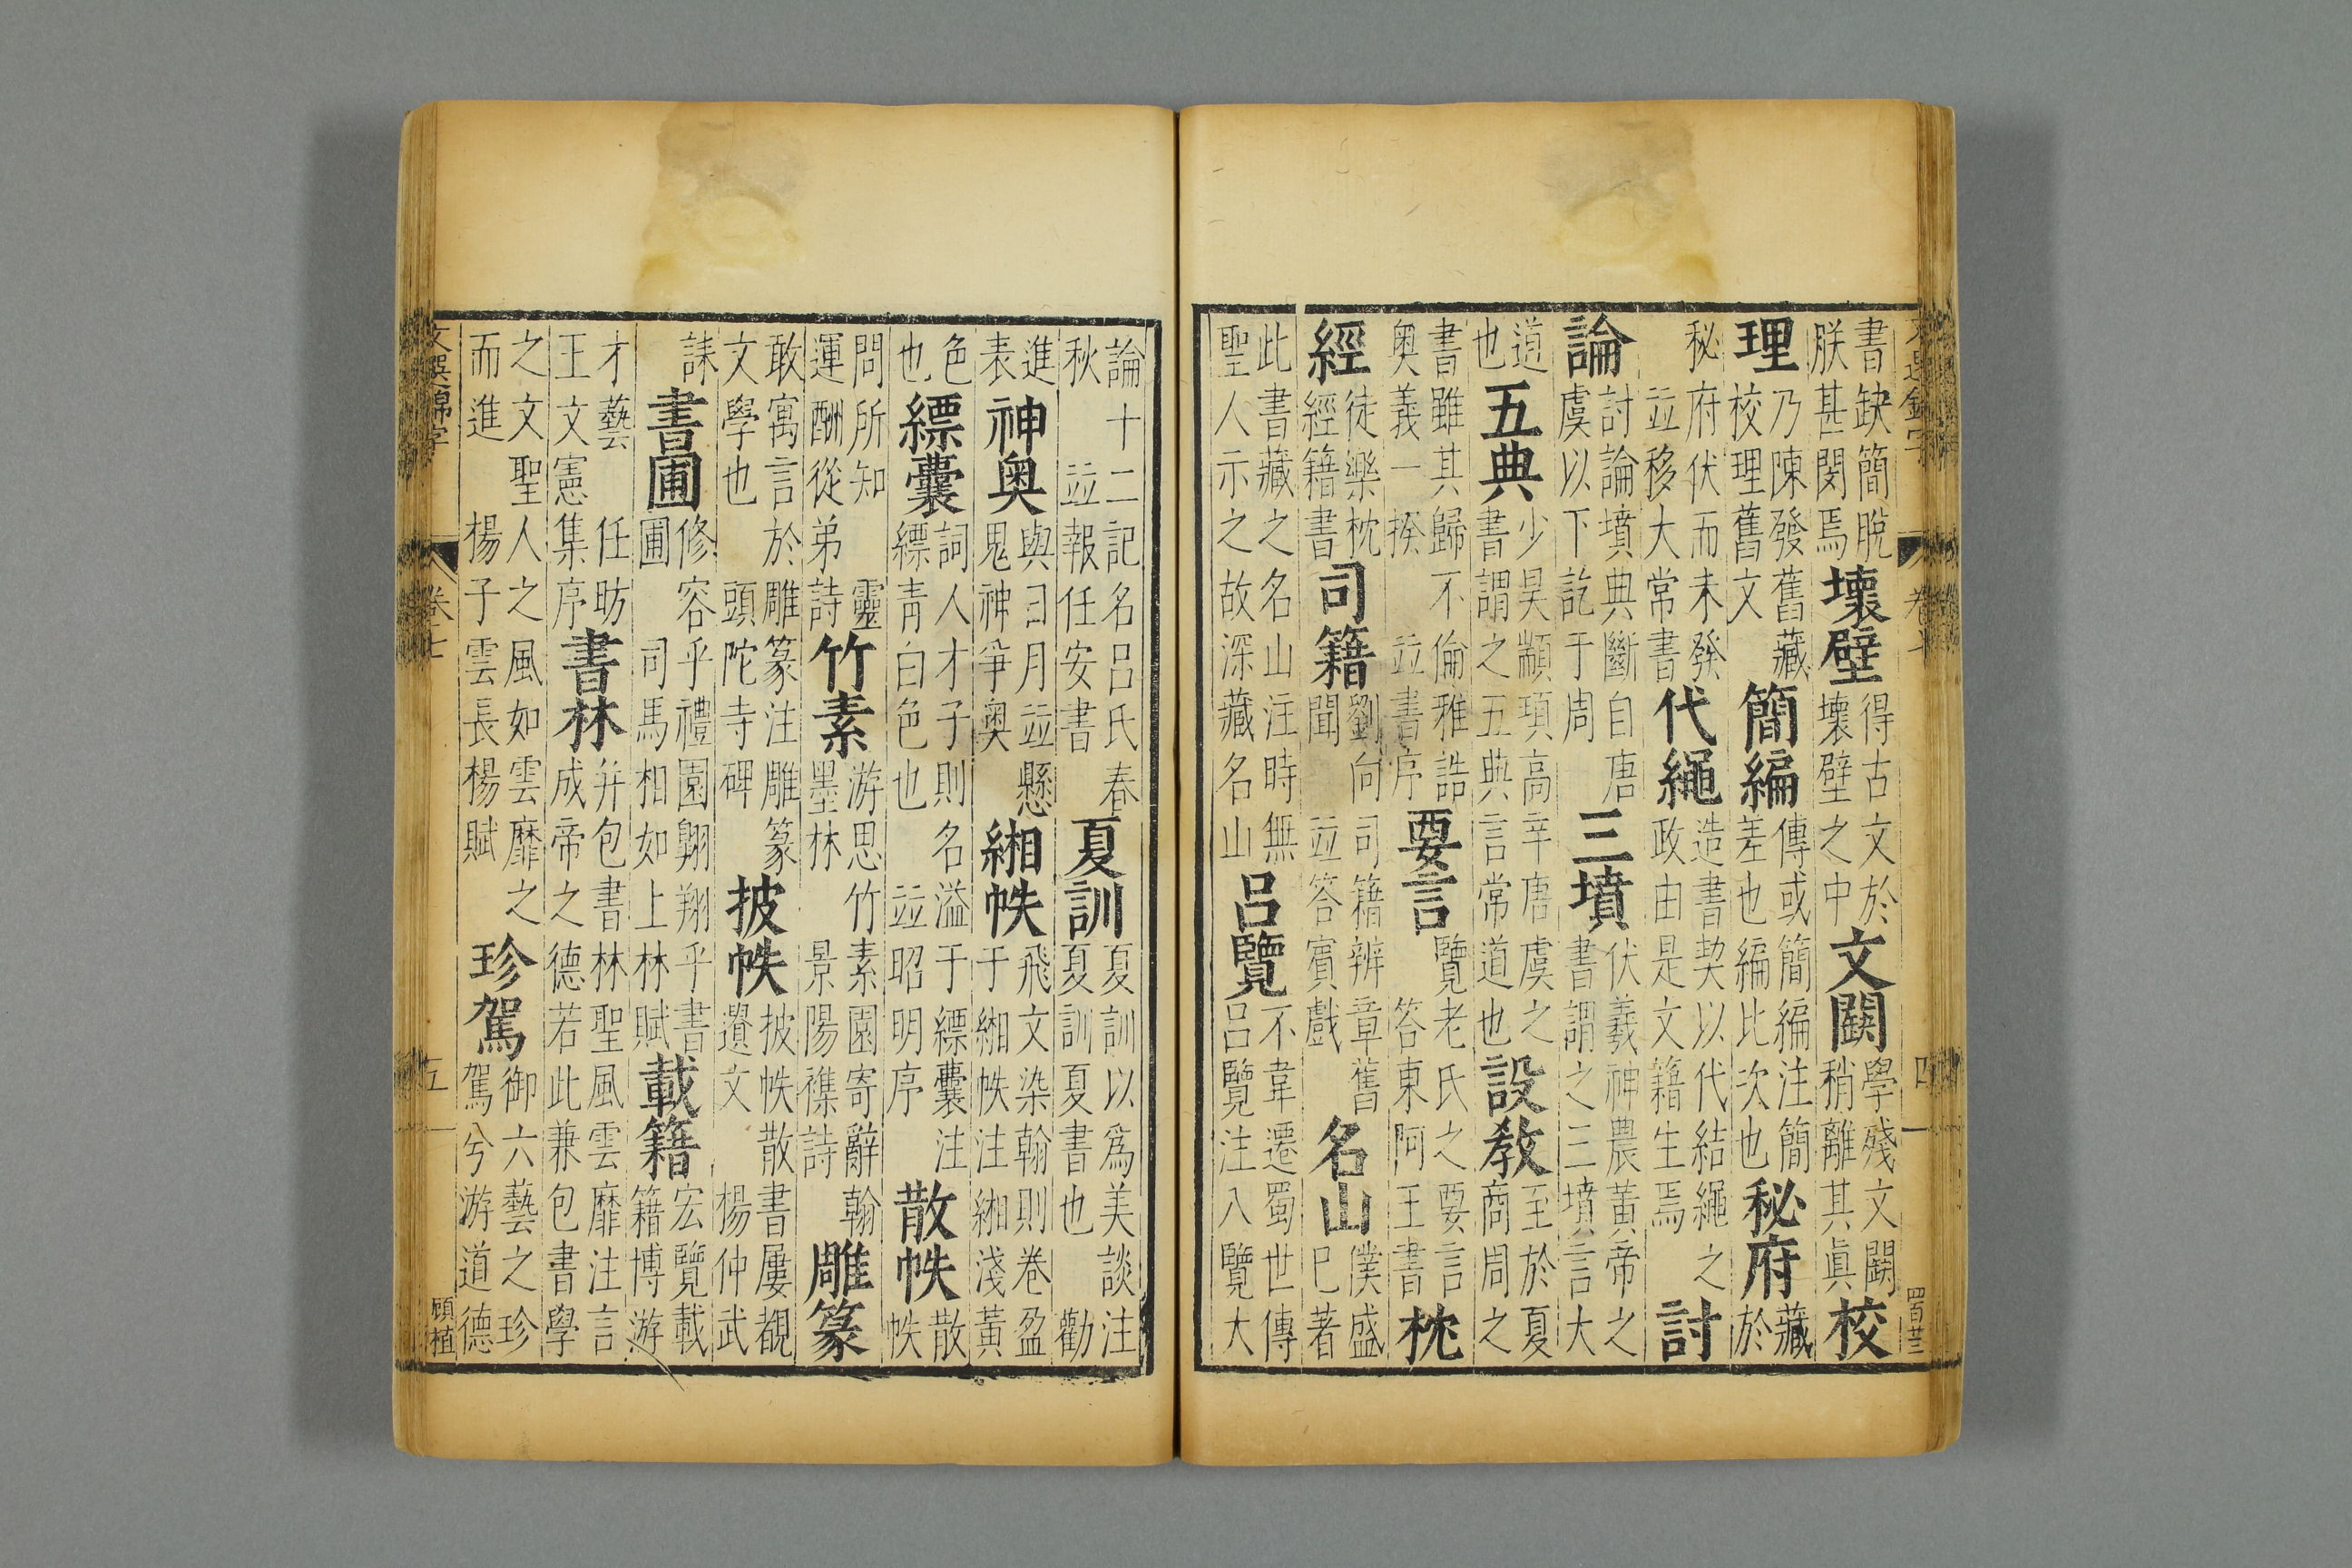 四
四百廿三
書缺簡脫朕甚閔焉壞壁得古文於壞壁之中文闕學殘文闕稍離其眞校
理乃陳發舊藏校理舊文簡編傳或簡編注簡差也編比次也秘府藏於
秘府伏而未發並移大常書代繩造書契以代結繩之政由是文籍生焉討
論討論墳典斷自唐虞以下訖于周三墳伏羲神農黃帝之書謂之三墳言大
道也五典少昊顓頊高辛唐虞之書謂之五典言常道也設敎至於夏商周之
書雖其歸不倫雅誥奧義一揆並書序要言覽老氏之要言答東阿王書枕
經徒樂枕經籍書司籍劉向司籍辨章舊聞並答賓戲名山僕盛巳著
此書藏之名山注時無聖人示之故深藏名山呂覽不韋遷蜀世傳呂覽注八覽大
論十二記名呂氏春秋並報任安書夏訓夏訓以爲美談注夏訓夏書也勸
進表神奧與日月並懸鬼神爭奧緗帙飛文染翰則卷盈于緗帙注緗淺黃
色也縹囊詞人才子則名溢于縹囊注縹青白色也並昭明序散帙散帙
問所知靈運酬從弟詩竹素游思竹素園寄辭翰墨林景陽襍詩雕篆
敢寓言於雕篆注雕篆文學也頭陀寺碑披帙披帙散書屢覩遺文楊仲武
誄書圃修容乎禮園翺翔乎書圃司馬相如上林賦載籍宏覽載籍博游
才藝任昉王文憲集序書林并包書林聖風雲靡注言成帝之德若此兼包書學
之文聖人之風如雲靡之而進楊子雲長楊賦珍駕御六藝之珍駕兮游道德
文選錦字
卷七
五
顧植